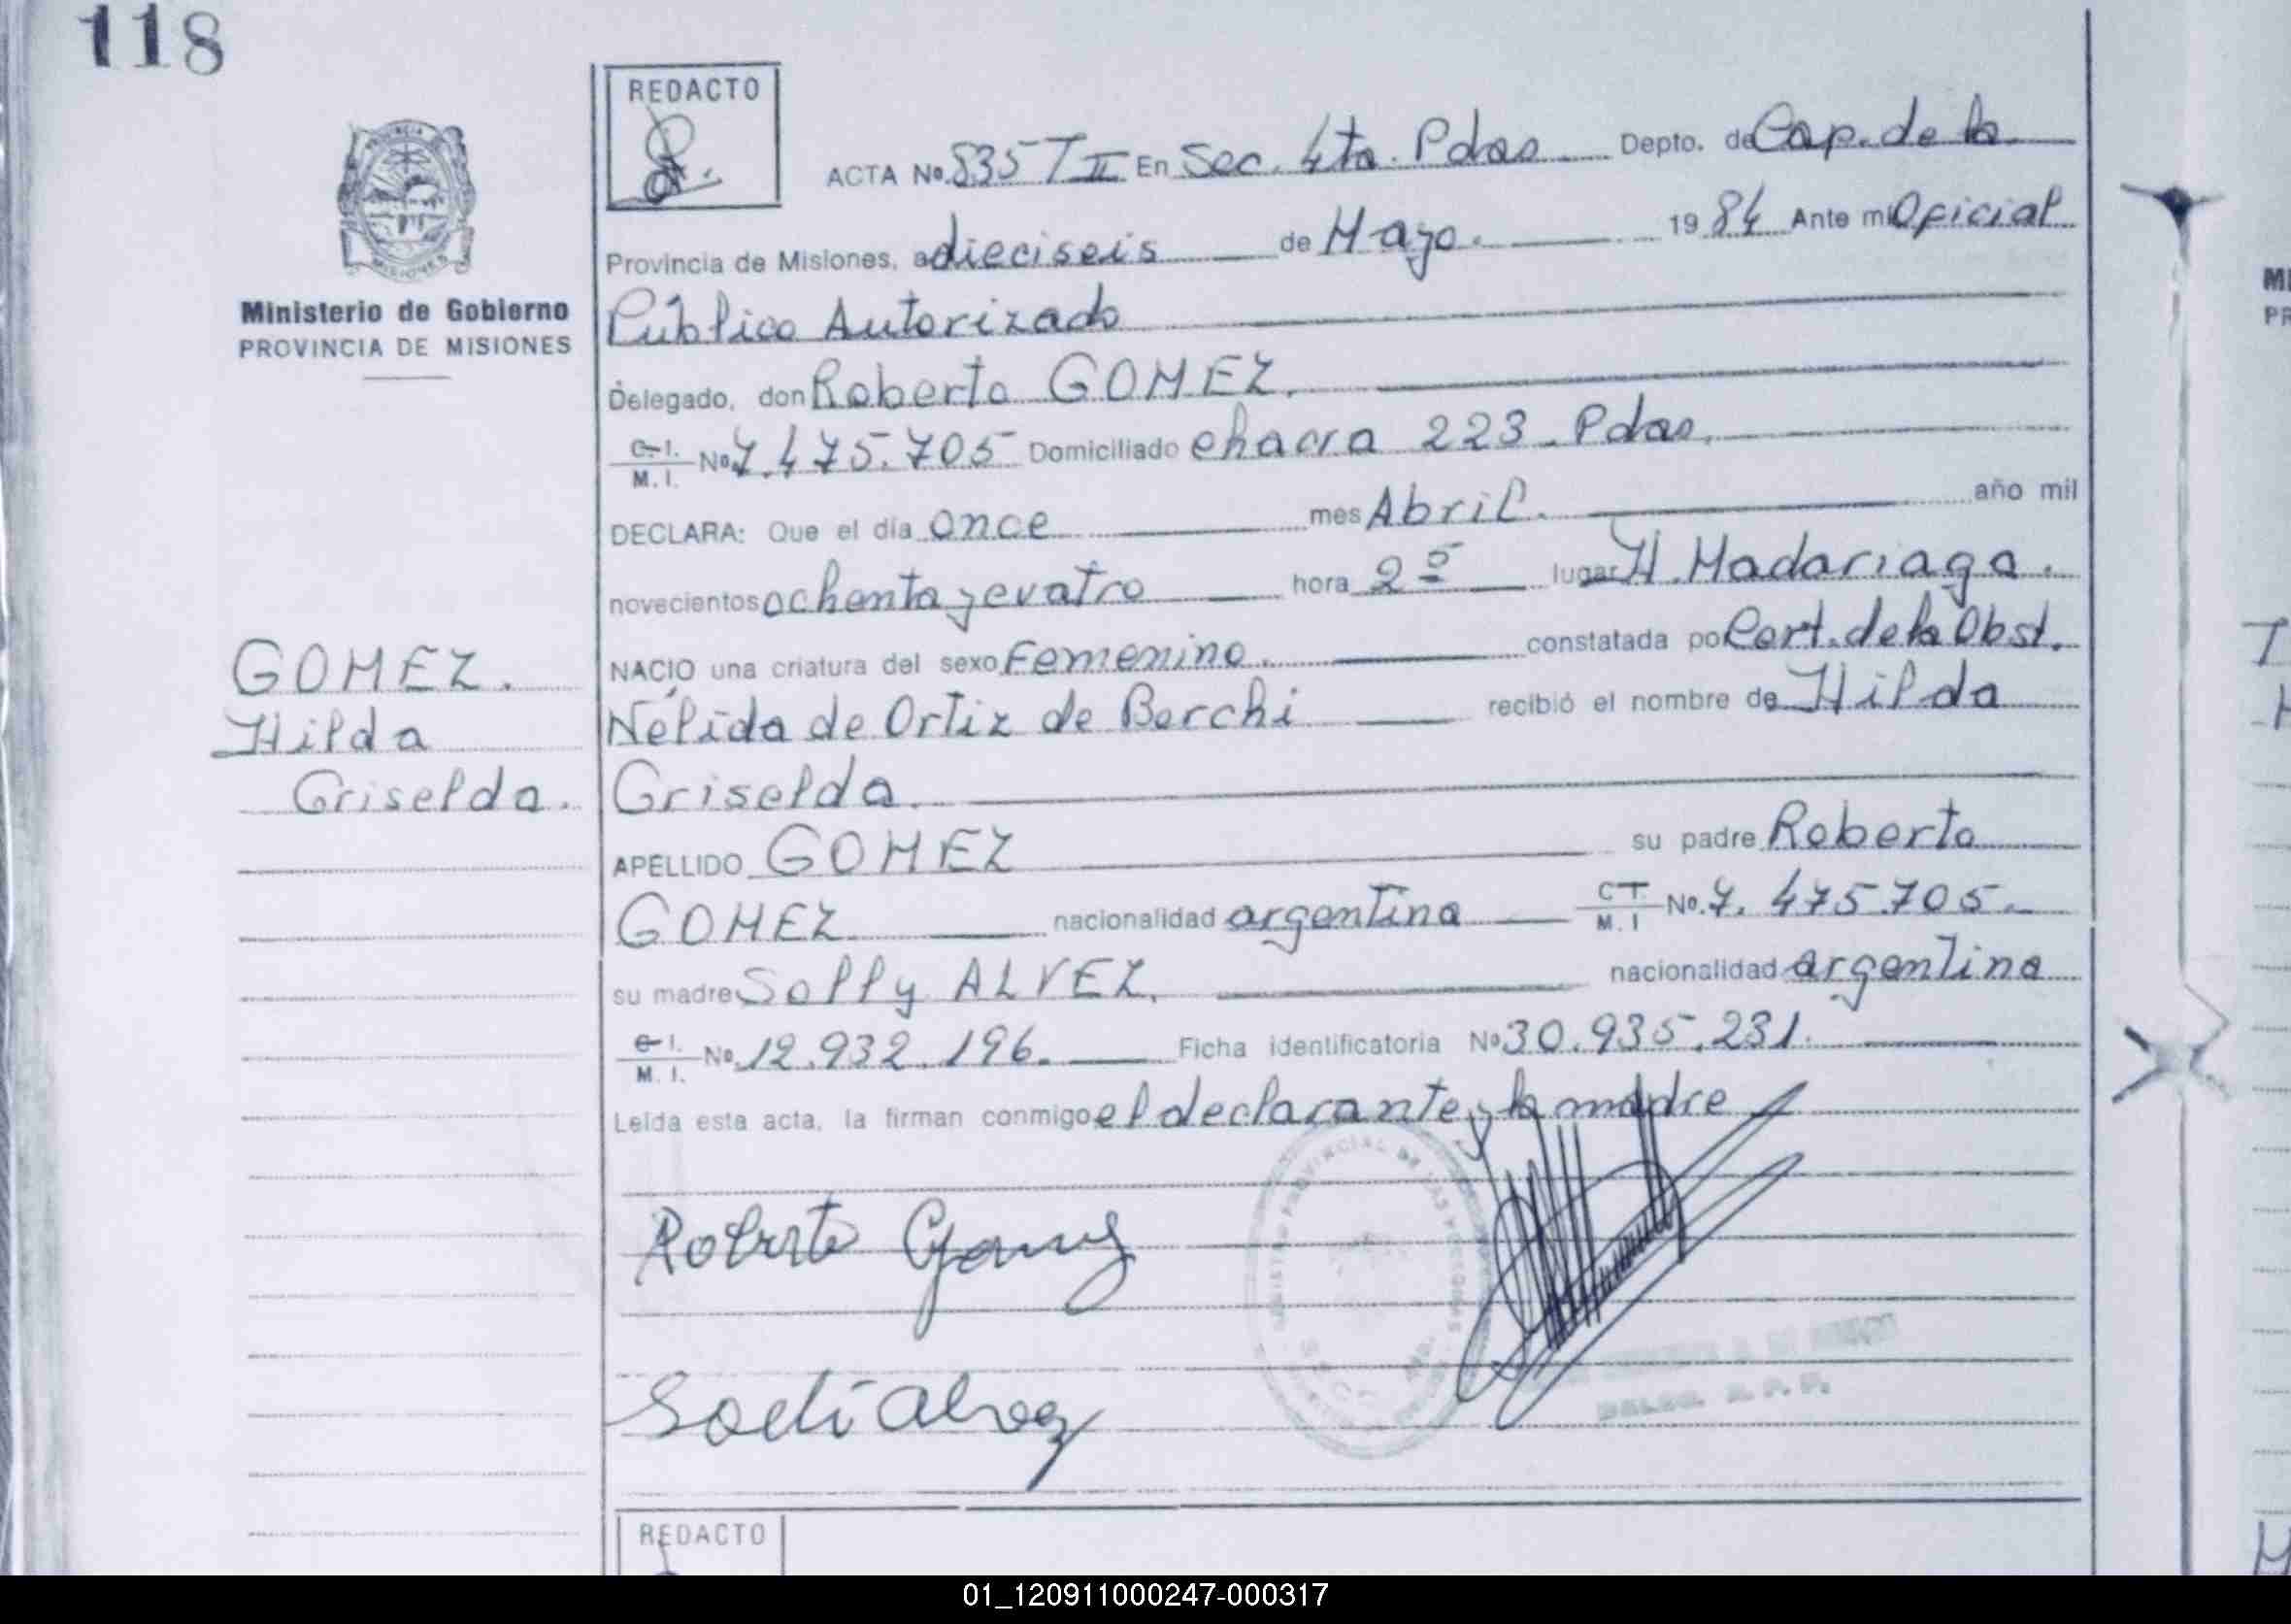 118
REDACTO
ACTA No. 835 T II En Sec. 4ta. Pdas Depto. de Cap. de la
Provincia de Misiones, a dieciseis de Mayo. 1984 Ante mi Oficial
Ministerio de Gobierno
PROVINCIA DE MISIONES
Público Autorizado
Delegado, don Roberto GOMEZ.
C.I. M.I. No. 7.475.705 Domiciliado chacra 223 - Pdas.
DECLARA: Que el día once mes Abril. año mil
novecientos ochenta y cuatro hora 2º lugar H. Madariaga.
NACIO una criatura del sexo Femenino. constatada po Cert. de la Obst.
Nélida de Ortiz de Berchi recibió el nombre de Hilda
Griselda.
GOMEZ.
Hilda
Griselda.
APELLIDO GOMEZ su padre Roberto
GOMEZ nacionalidad argentina C.I. M.I No. 7.475.705.
su madre Solly ALVEZ. nacionalidad argentina
C.I. M.I. No. 12.932.196. Ficha identificatoria No 30.935.231.
Leida esta acta, la firman conmigo el declarante y la madre
Roberto Gomez
Soeli Alvez
REDACTO
01_120911000247-000317